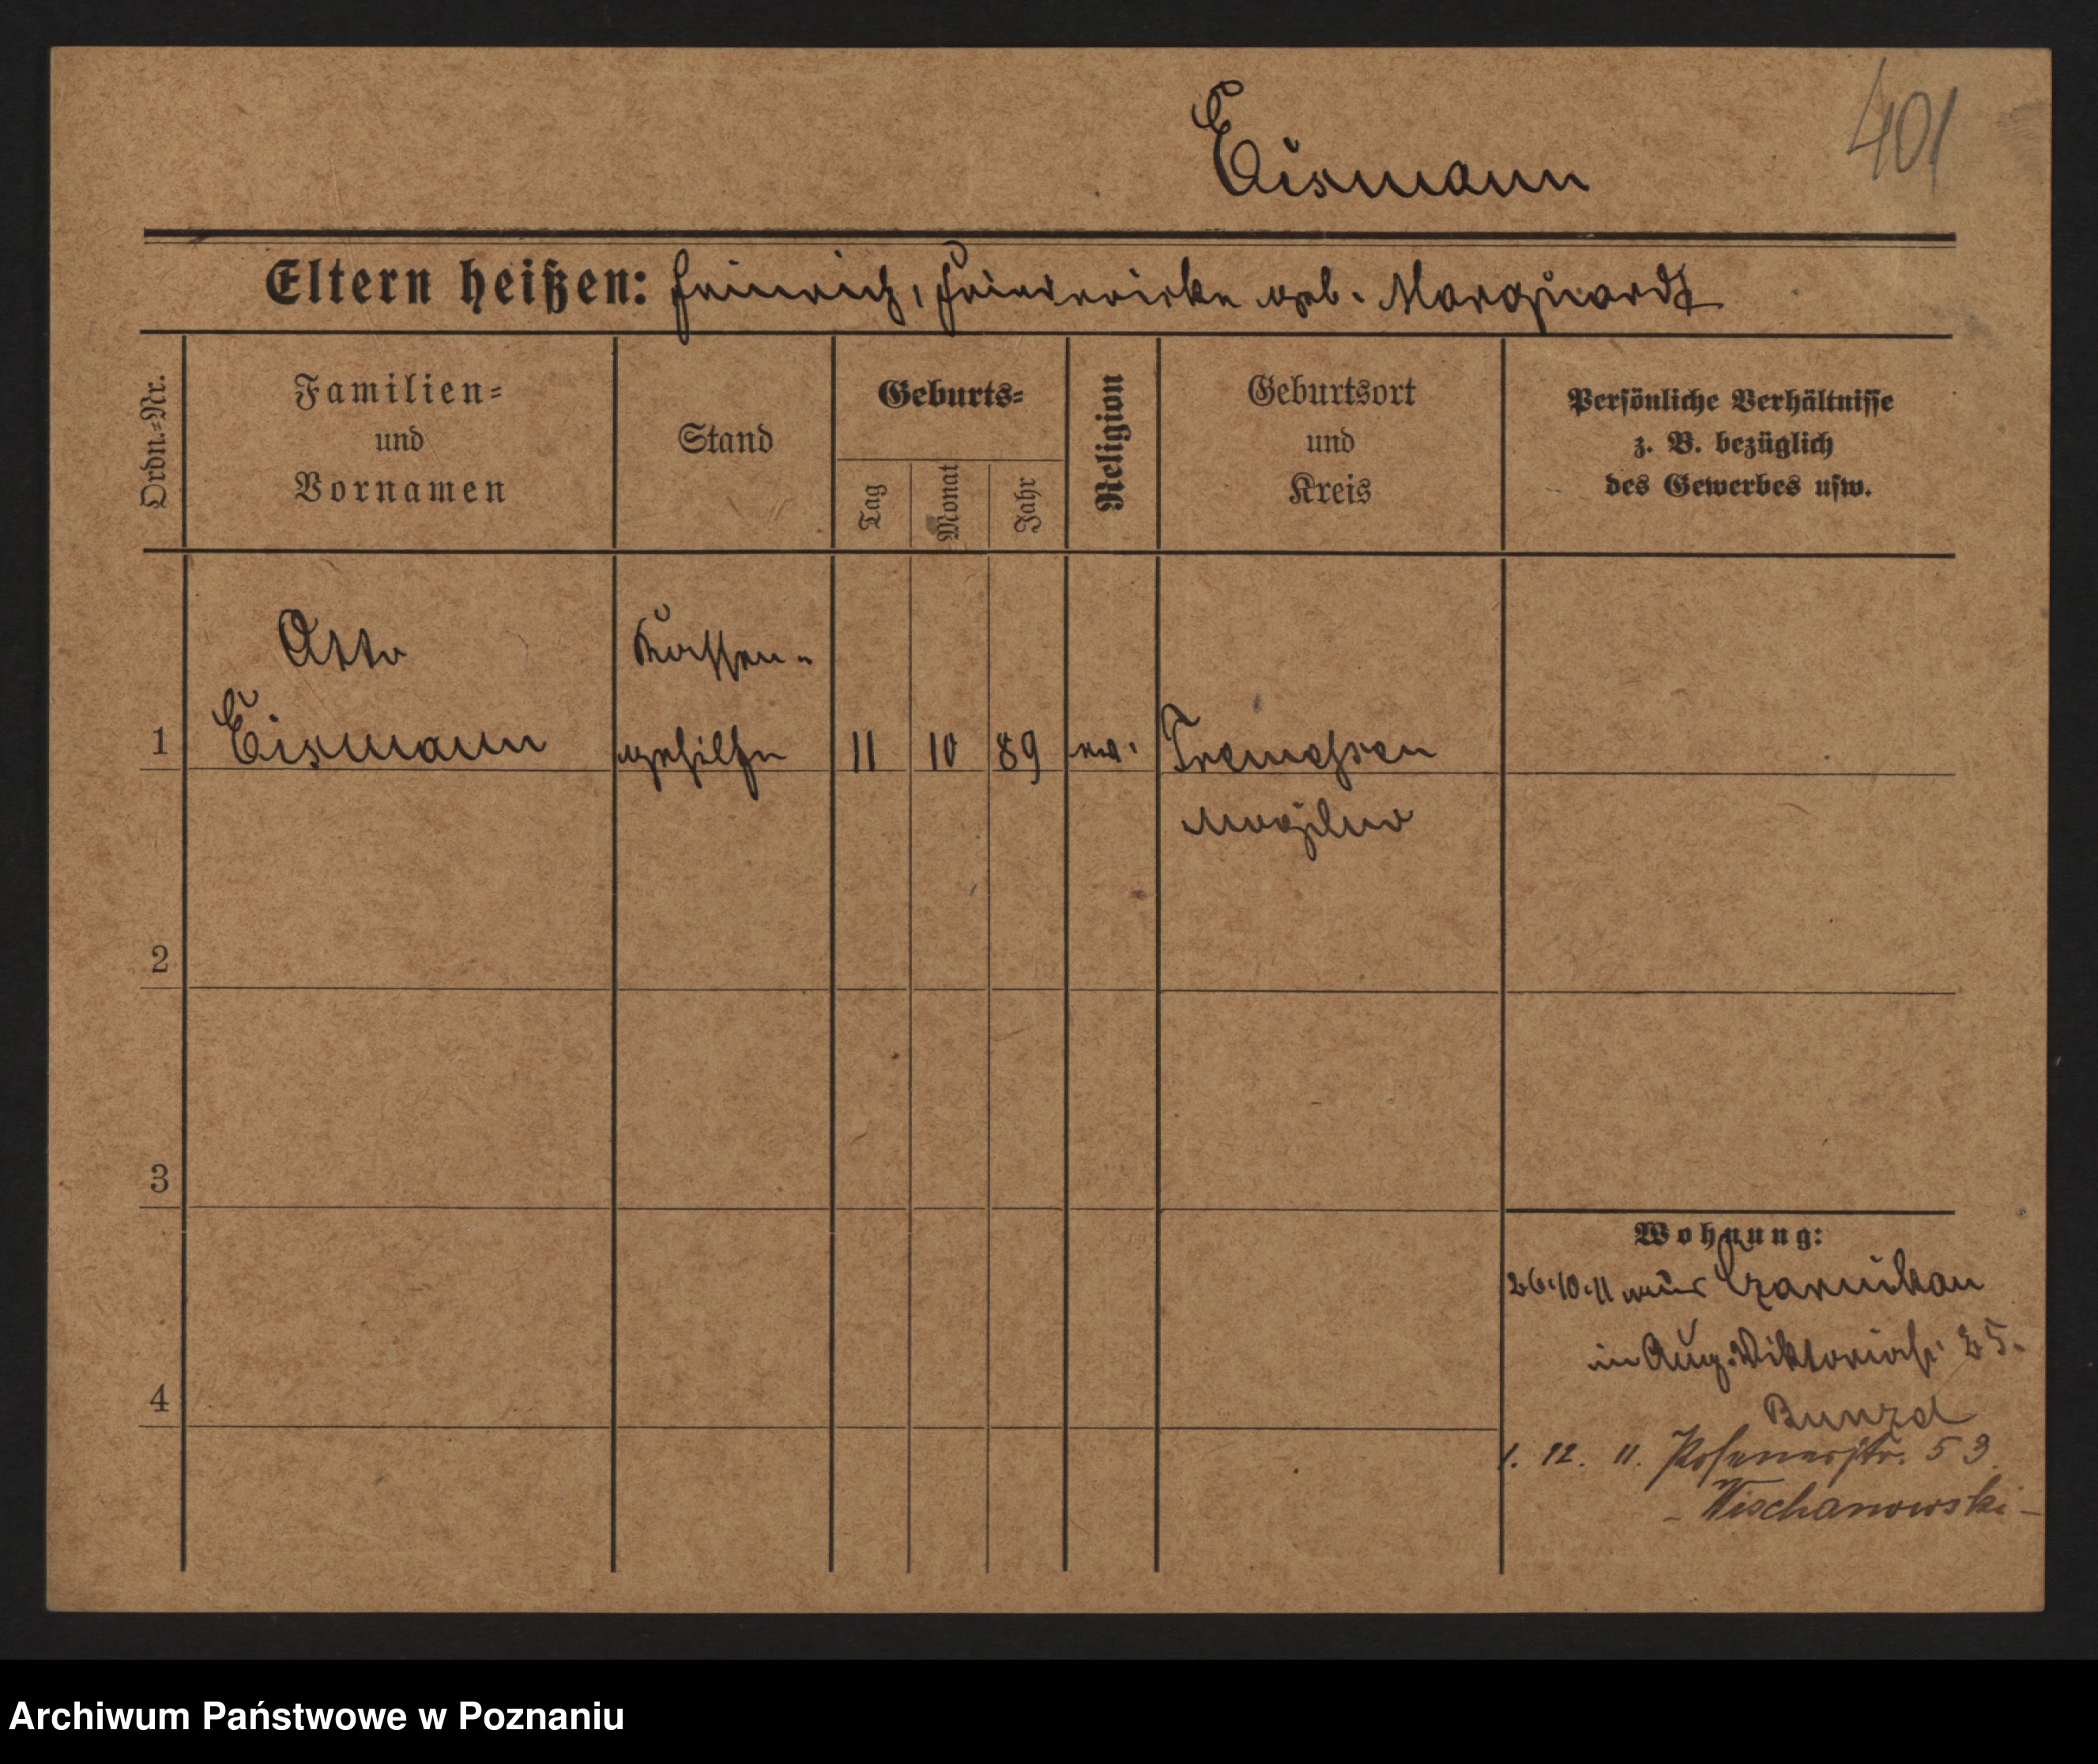 401
Eismann
Eltern heißen: Heinrich, Friederike geb. Marquardt
Ordn.-Nr.
Familien-
und
Vornamen
Stand
Geburts-
Tag
Monat
Jahr
Religion
Geburtsort
und
Kreis
Persönliche Verhältnisse
z. B. bezüglich
des Gewerbes usw.
Otto
Kassen-
1 Eismann gehilfe 11 10 89 ev. Tremessen
Mogilno
2
3
4
Wohnung:
26.10.11 aus Czarnikau
in Aug. Viktoriastr. 25.
1. 12. 11. Posenerstr. 53.
- Wischanowski -
Archiwum Państwowe w Poznaniu